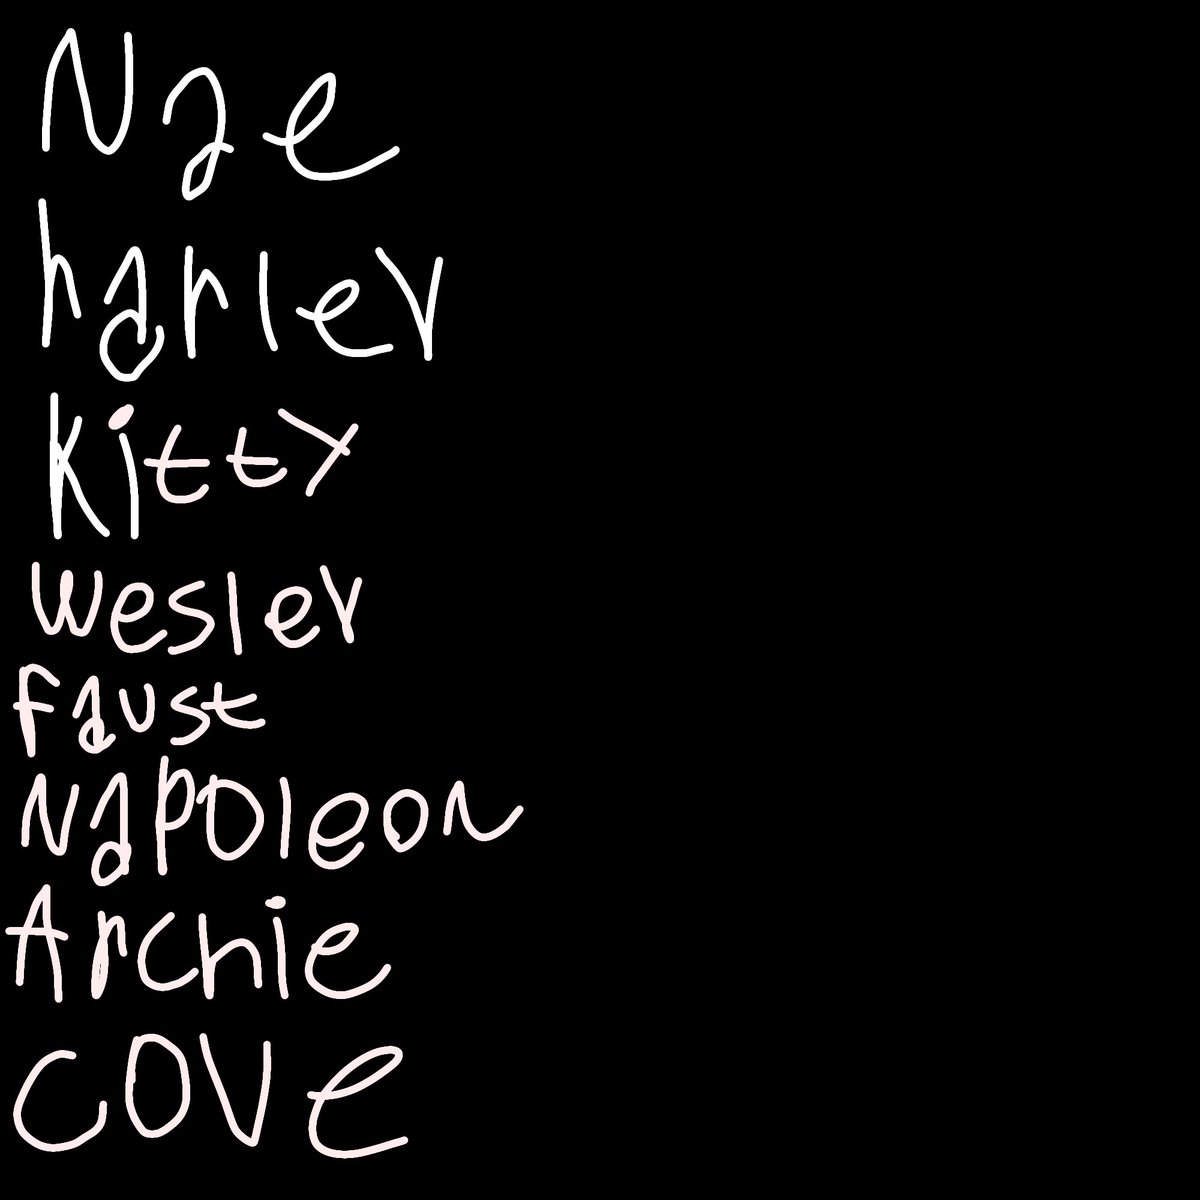 Nae
harley
kitty
wesley
Faust
Napoleon
Archie
cove